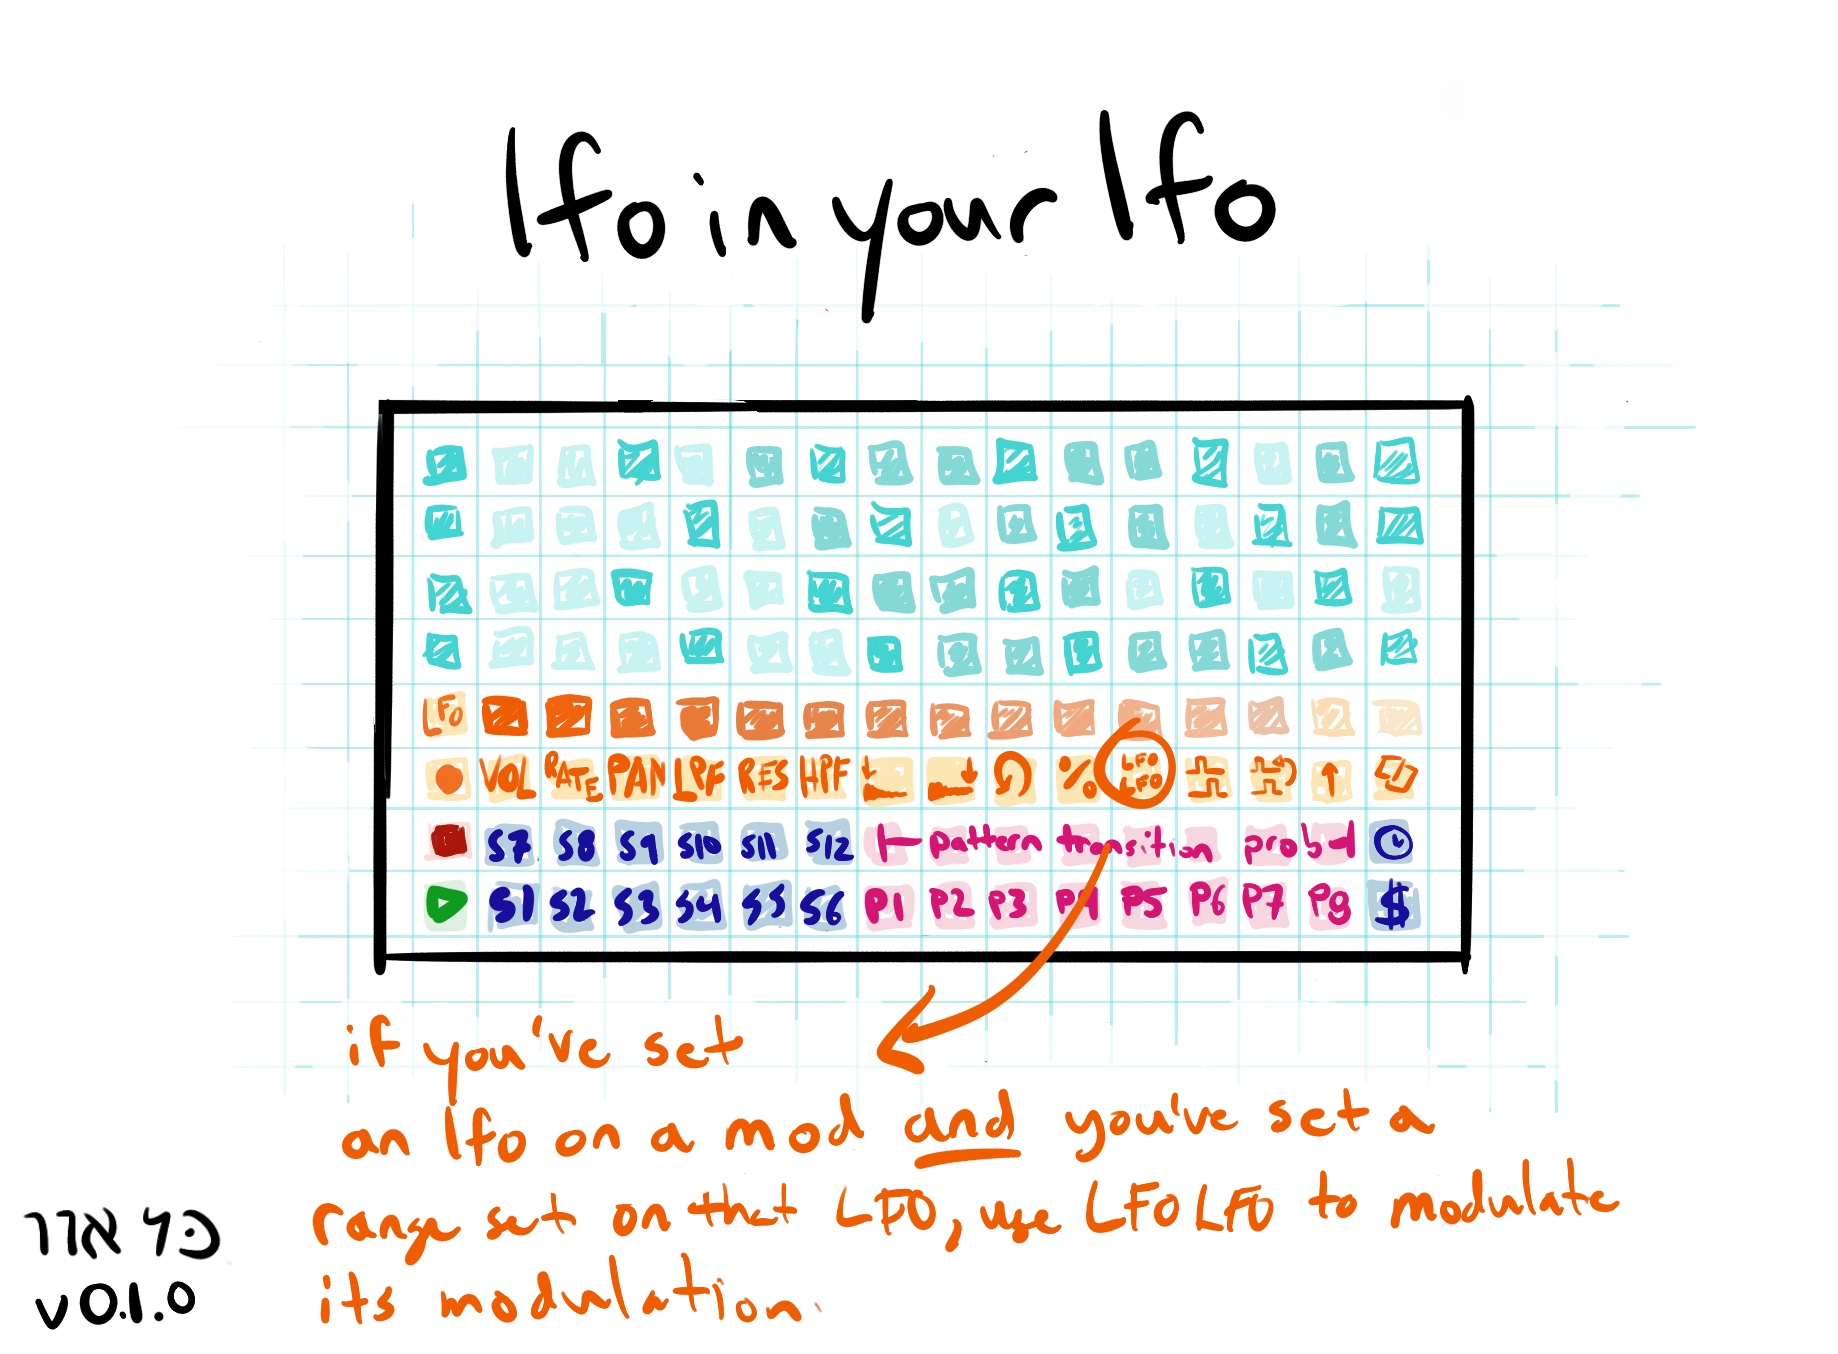 lfo in your lfo
LFO
VOL RATE PAN LPF RES HPF % LFO LFO
S7 S8 S9 S10 S11 S12 pattern transition prob
S1 S2 S3 S4 S5 S6 P1 P2 P3 P4 P5 P6 P7 P8 $
if you've set
an lfo on a mod and you've set a
range set on that LFO, use LFO LFO to modulate
its modulation.
v0.1.0